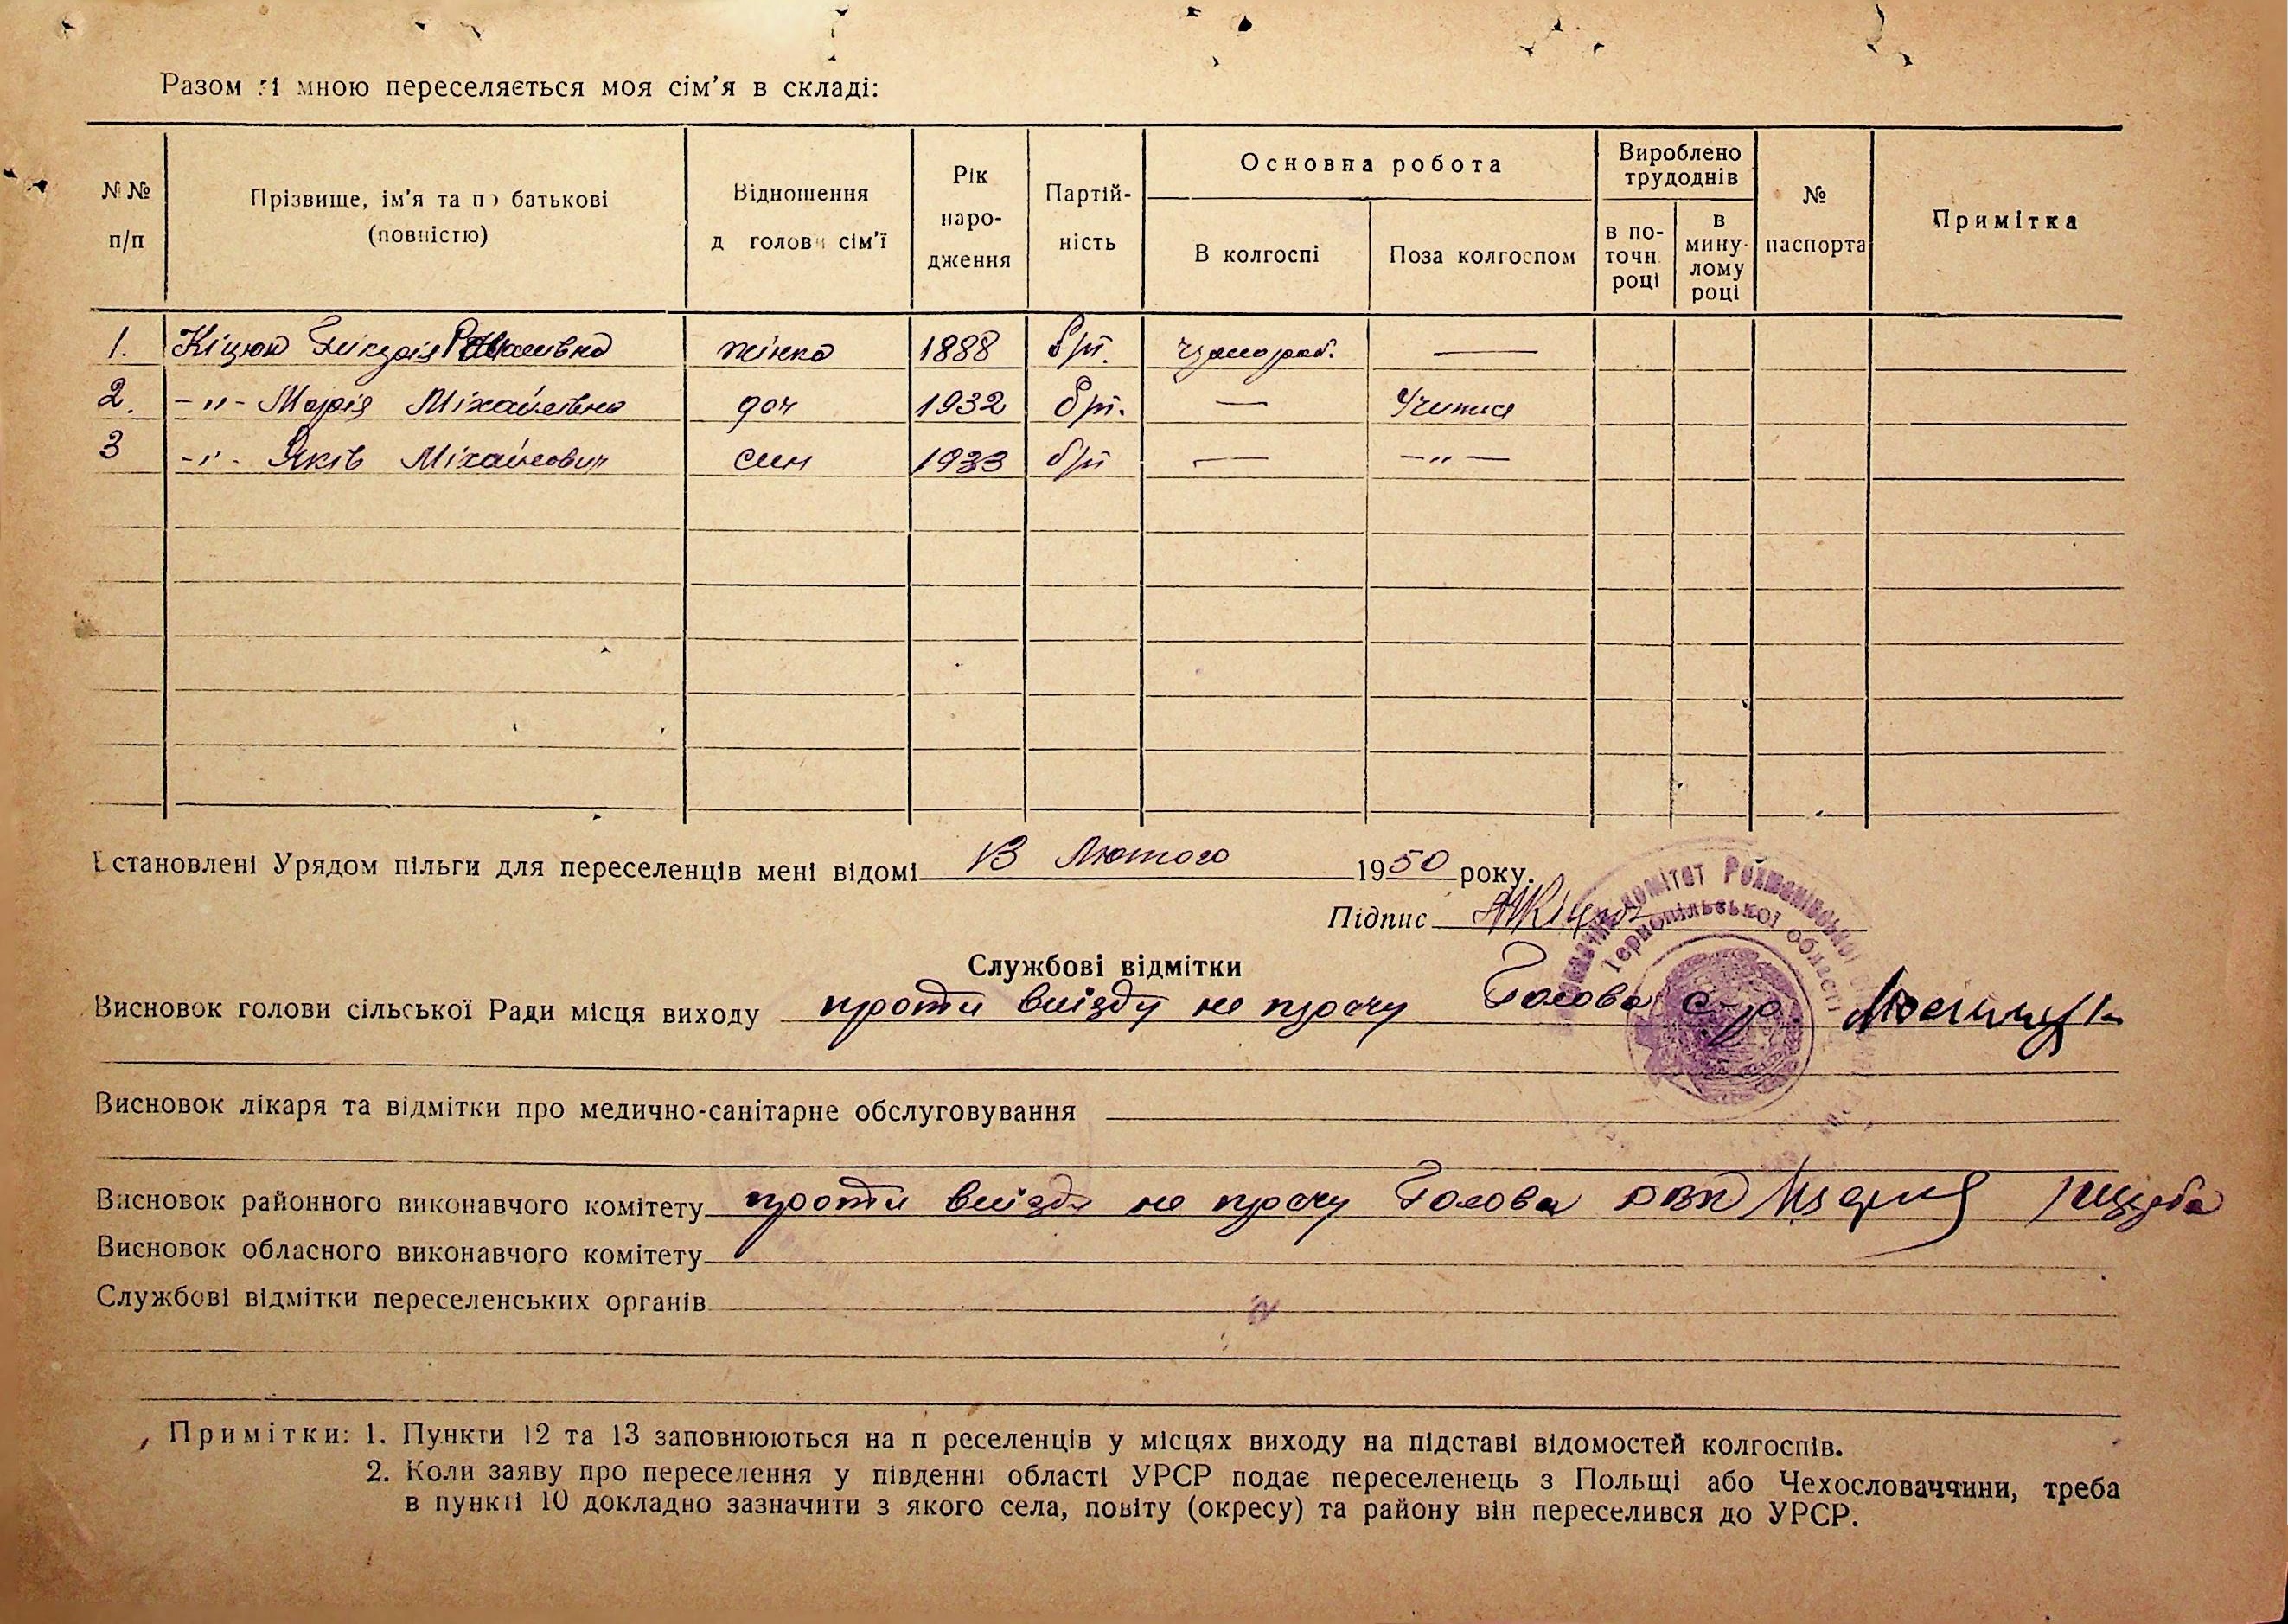 Разом зі мною переселяється моя сім'я в складі:
N№ п/п
Прізвище, ім'я та по батькові (повністю)
Відношення д голови сім'ї
Рік народження
Партійність
Основна робота
В колгоспі
Поза колгоспом
Вироблено трудоднів
в поточн. році
в минулому році
№ паспорта
Примітка
1. Кіцюк Вікторія Романівна жінка 1888 б/п. —
2. -"- Марія Міхайлівна доч 1932 б/п. — Учится
3 -"- Яків Міхайлович син 1933 б/п — -"-
Встановлені Урядом пільги для переселенців мені відомі 13 Лютого 1950 року.
Підпис
Службові відмітки
Висновок голови сільської Ради місця виходу проти виїзду не прочу Голова с-р.
Висновок лікаря та відмітки про медично-санітарне обслуговування
Висновок районного виконавчого комітету проти виїзду не прочу Голова РВК
Висновок обласного виконавчого комітету
Службові відмітки переселенських органів
Примітки: 1. Пункти 12 та 13 заповнюються на п реселенців у місцях виходу на підставі відомостей колгоспів.
2. Коли заяву про переселення у південні області УРСР подає переселенець з Польщі або Чехословаччини, треба
в пункті 10 докладно зазначити з якого села, повіту (окресу) та району він переселився до УРСР.
комітет
Тернопільської області